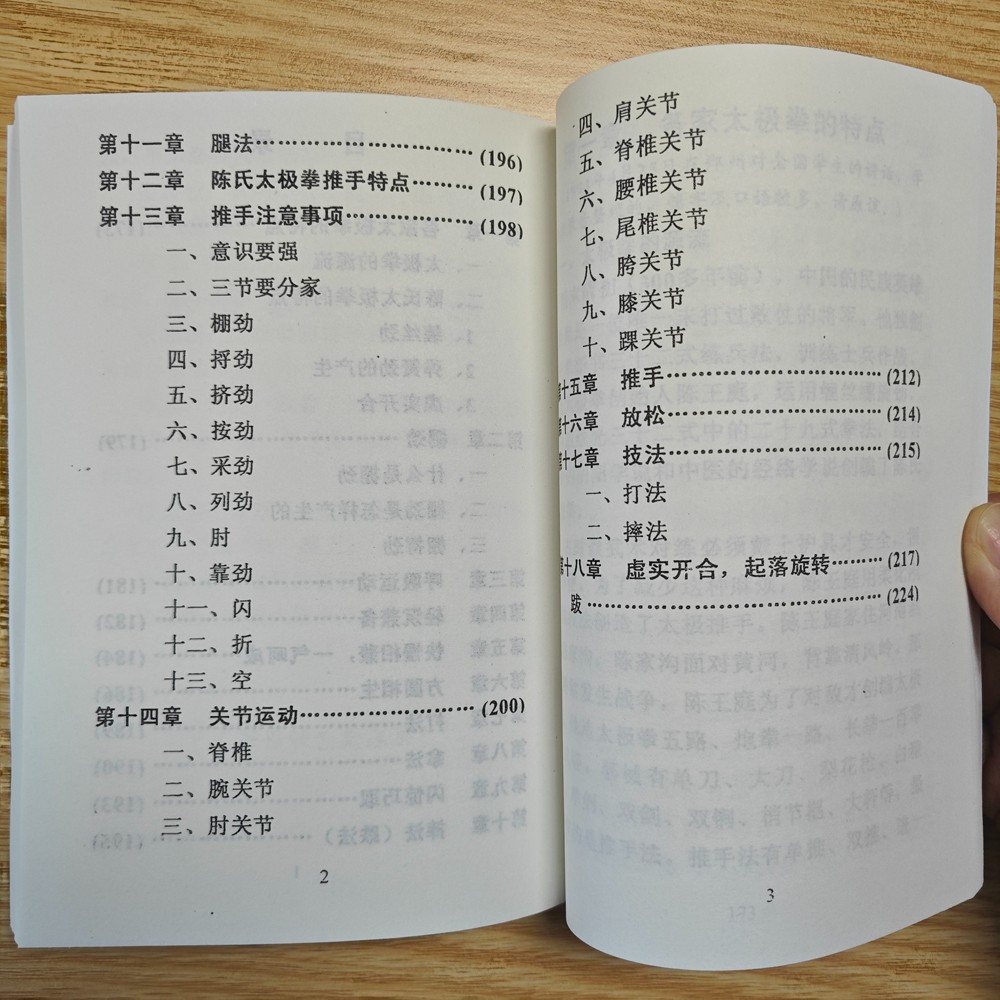 第十一章 腿法……………………………(196)
第十二章 陈氏太极拳推手特点………(197)
第十三章 推手注意事项………………(198)
一、意识要强
二、三节要分家
三、棚劲
四、捋劲
五、挤劲
六、按劲
七、采劲
八、列劲
九、肘
十、靠劲
十一、闪
十二、折
十三、空
第十四章 关节运动……………………(200)
一、脊椎
二、腕关节
三、肘关节
2
四、肩关节
五、脊椎关节
六、腰椎关节
七、尾椎关节
八、胯关节
九、膝关节
十、踝关节
第十五章 推手……………………………(212)
第十六章 放松……………………………(214)
第十七章 技法……………………………(215)
一、打法
二、摔法
第十八章 虚实开合，起落旋转………(217)
跋…………………………………………(224)
3